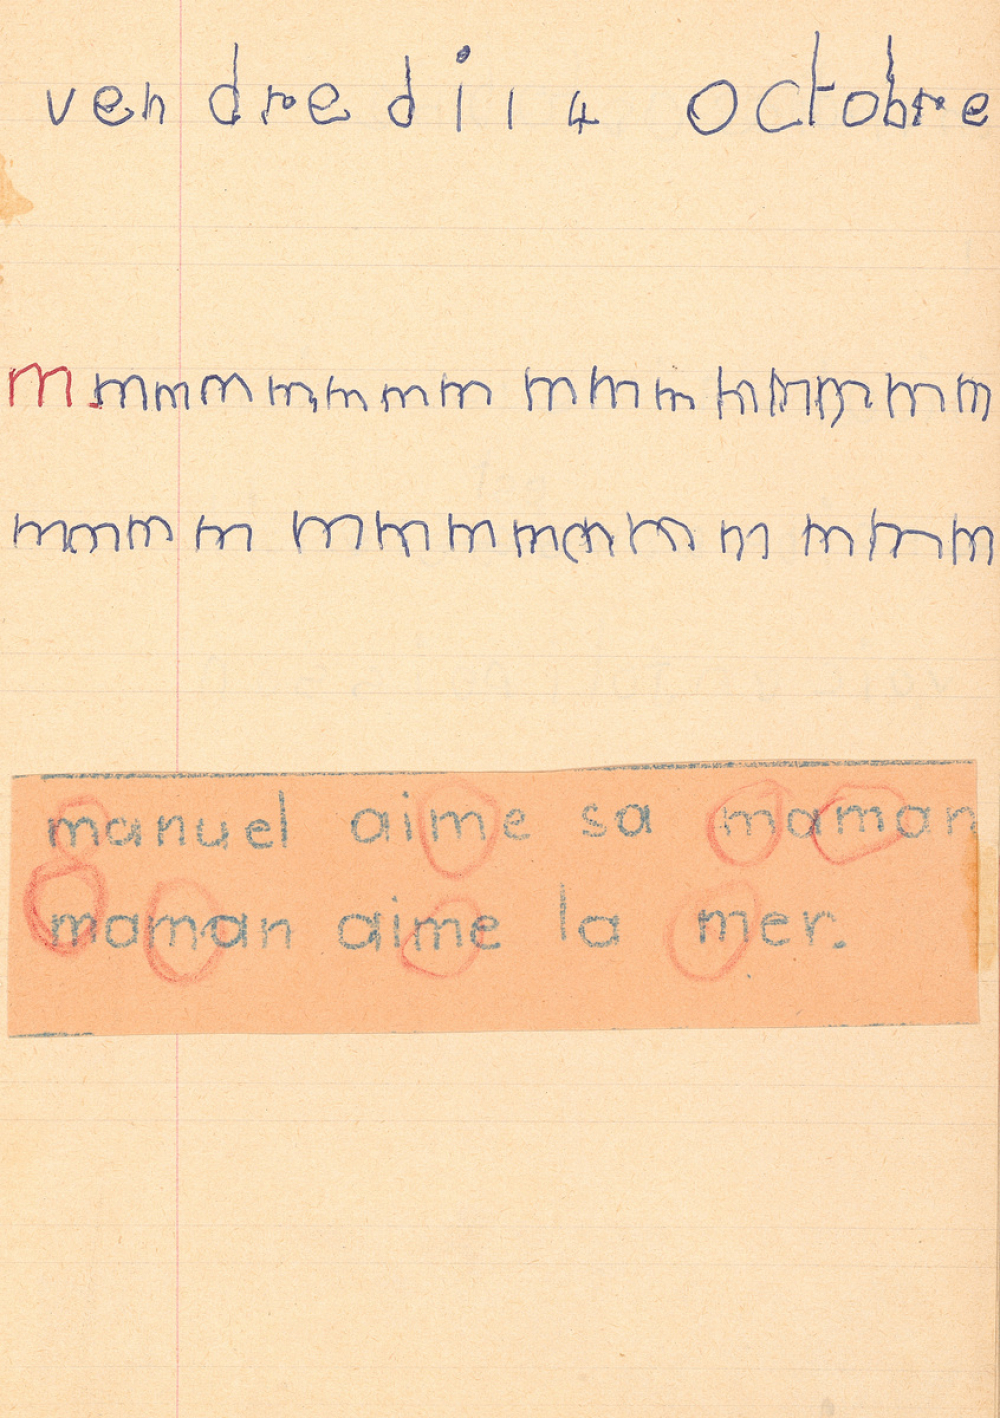 vendredi 14 octobre
m. mmmmmmm mmmmmmmm
mmm m mmmmmm m mmm
manuel aime sa maman
maman aime la mer.